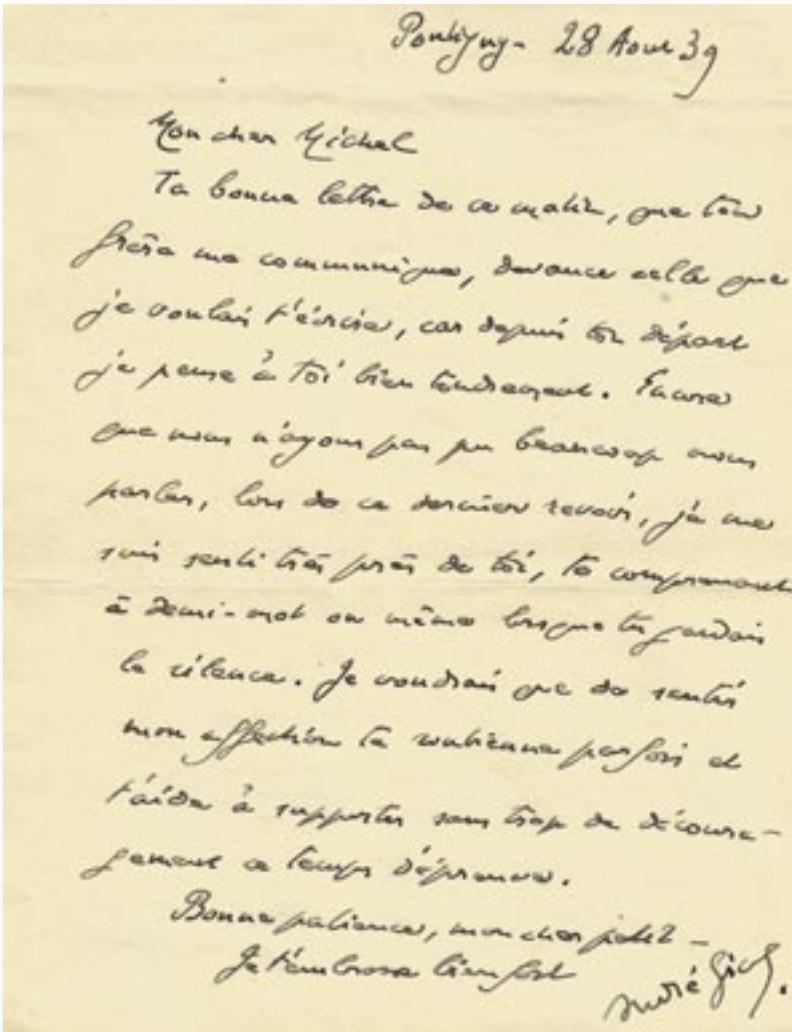 Pontigny - 28 Aout 39
Mon cher Michel
Ta bonne lettre de ce matin, que ton
frère me communique, devance celle que
je voulais t'écrire, car depuis ton départ
je pense à toi bien tendrement. Encore
que nous n'ayons pas pu beaucoup nous
parler, lors de ce dernier revoir, je me
suis senti très près de toi, te comprenant
à demi-mot ou même lorsque tu gardais
le silence. Je voudrais que de sentir
mon affection te soutienne parfois et
t'aide à supporter sans trop de découra-
gement ce temps d'épreuves.
Bonne patience, mon cher petit -
Je t'embrasse bien fort
André Gide.